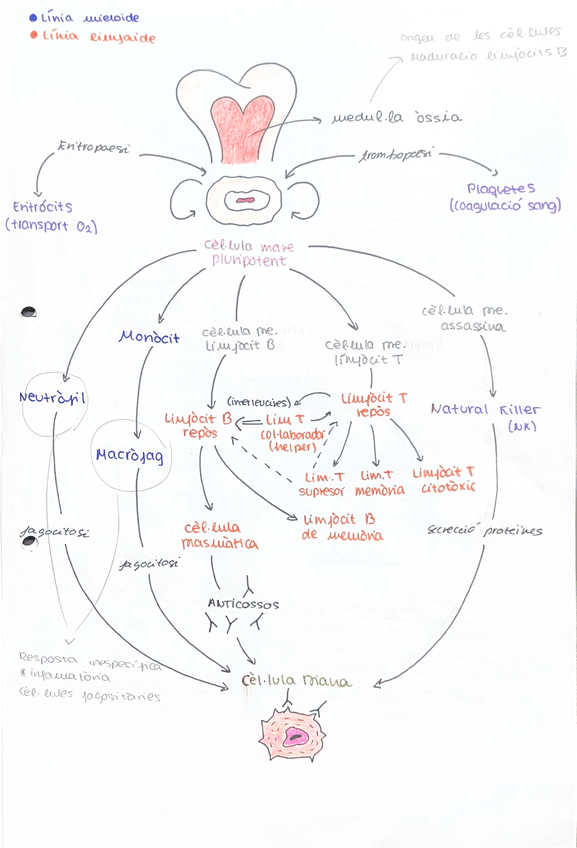 Línia mieloide
Línia limfoide
origen de les cèl·lules
Maduració limfòcits B
medul·la òssia
Eritropoesi
trombopoesi
Eritròcits
(transport O2)
Plaquetes
(coagulació sang)
cèl·lula mare
pluripotent
cèl·lula me.
assassina
Monòcit
cèl·lula me.
limfòcit B
cèl·lula me.
limfòcit T
Neutròfil
(interleucines)
Limfòcit T
repòs
Natural Killer
(NK)
Limfòcit B
repòs
Lim T
col·laborador
(helper)
Macròfag
Lim.T
supresor
Lim.T
memòria
Limfòcit T
citotòxic
cèl·lula
plasmàtica
limfòcit B
de memòria
fagocitosi
fagocitosi
secreció proteïnes
ANTICOSSOS
Resposta inespecífica
* inflamatòria
Cèl·lules fagositàries
cèl·lula Diana